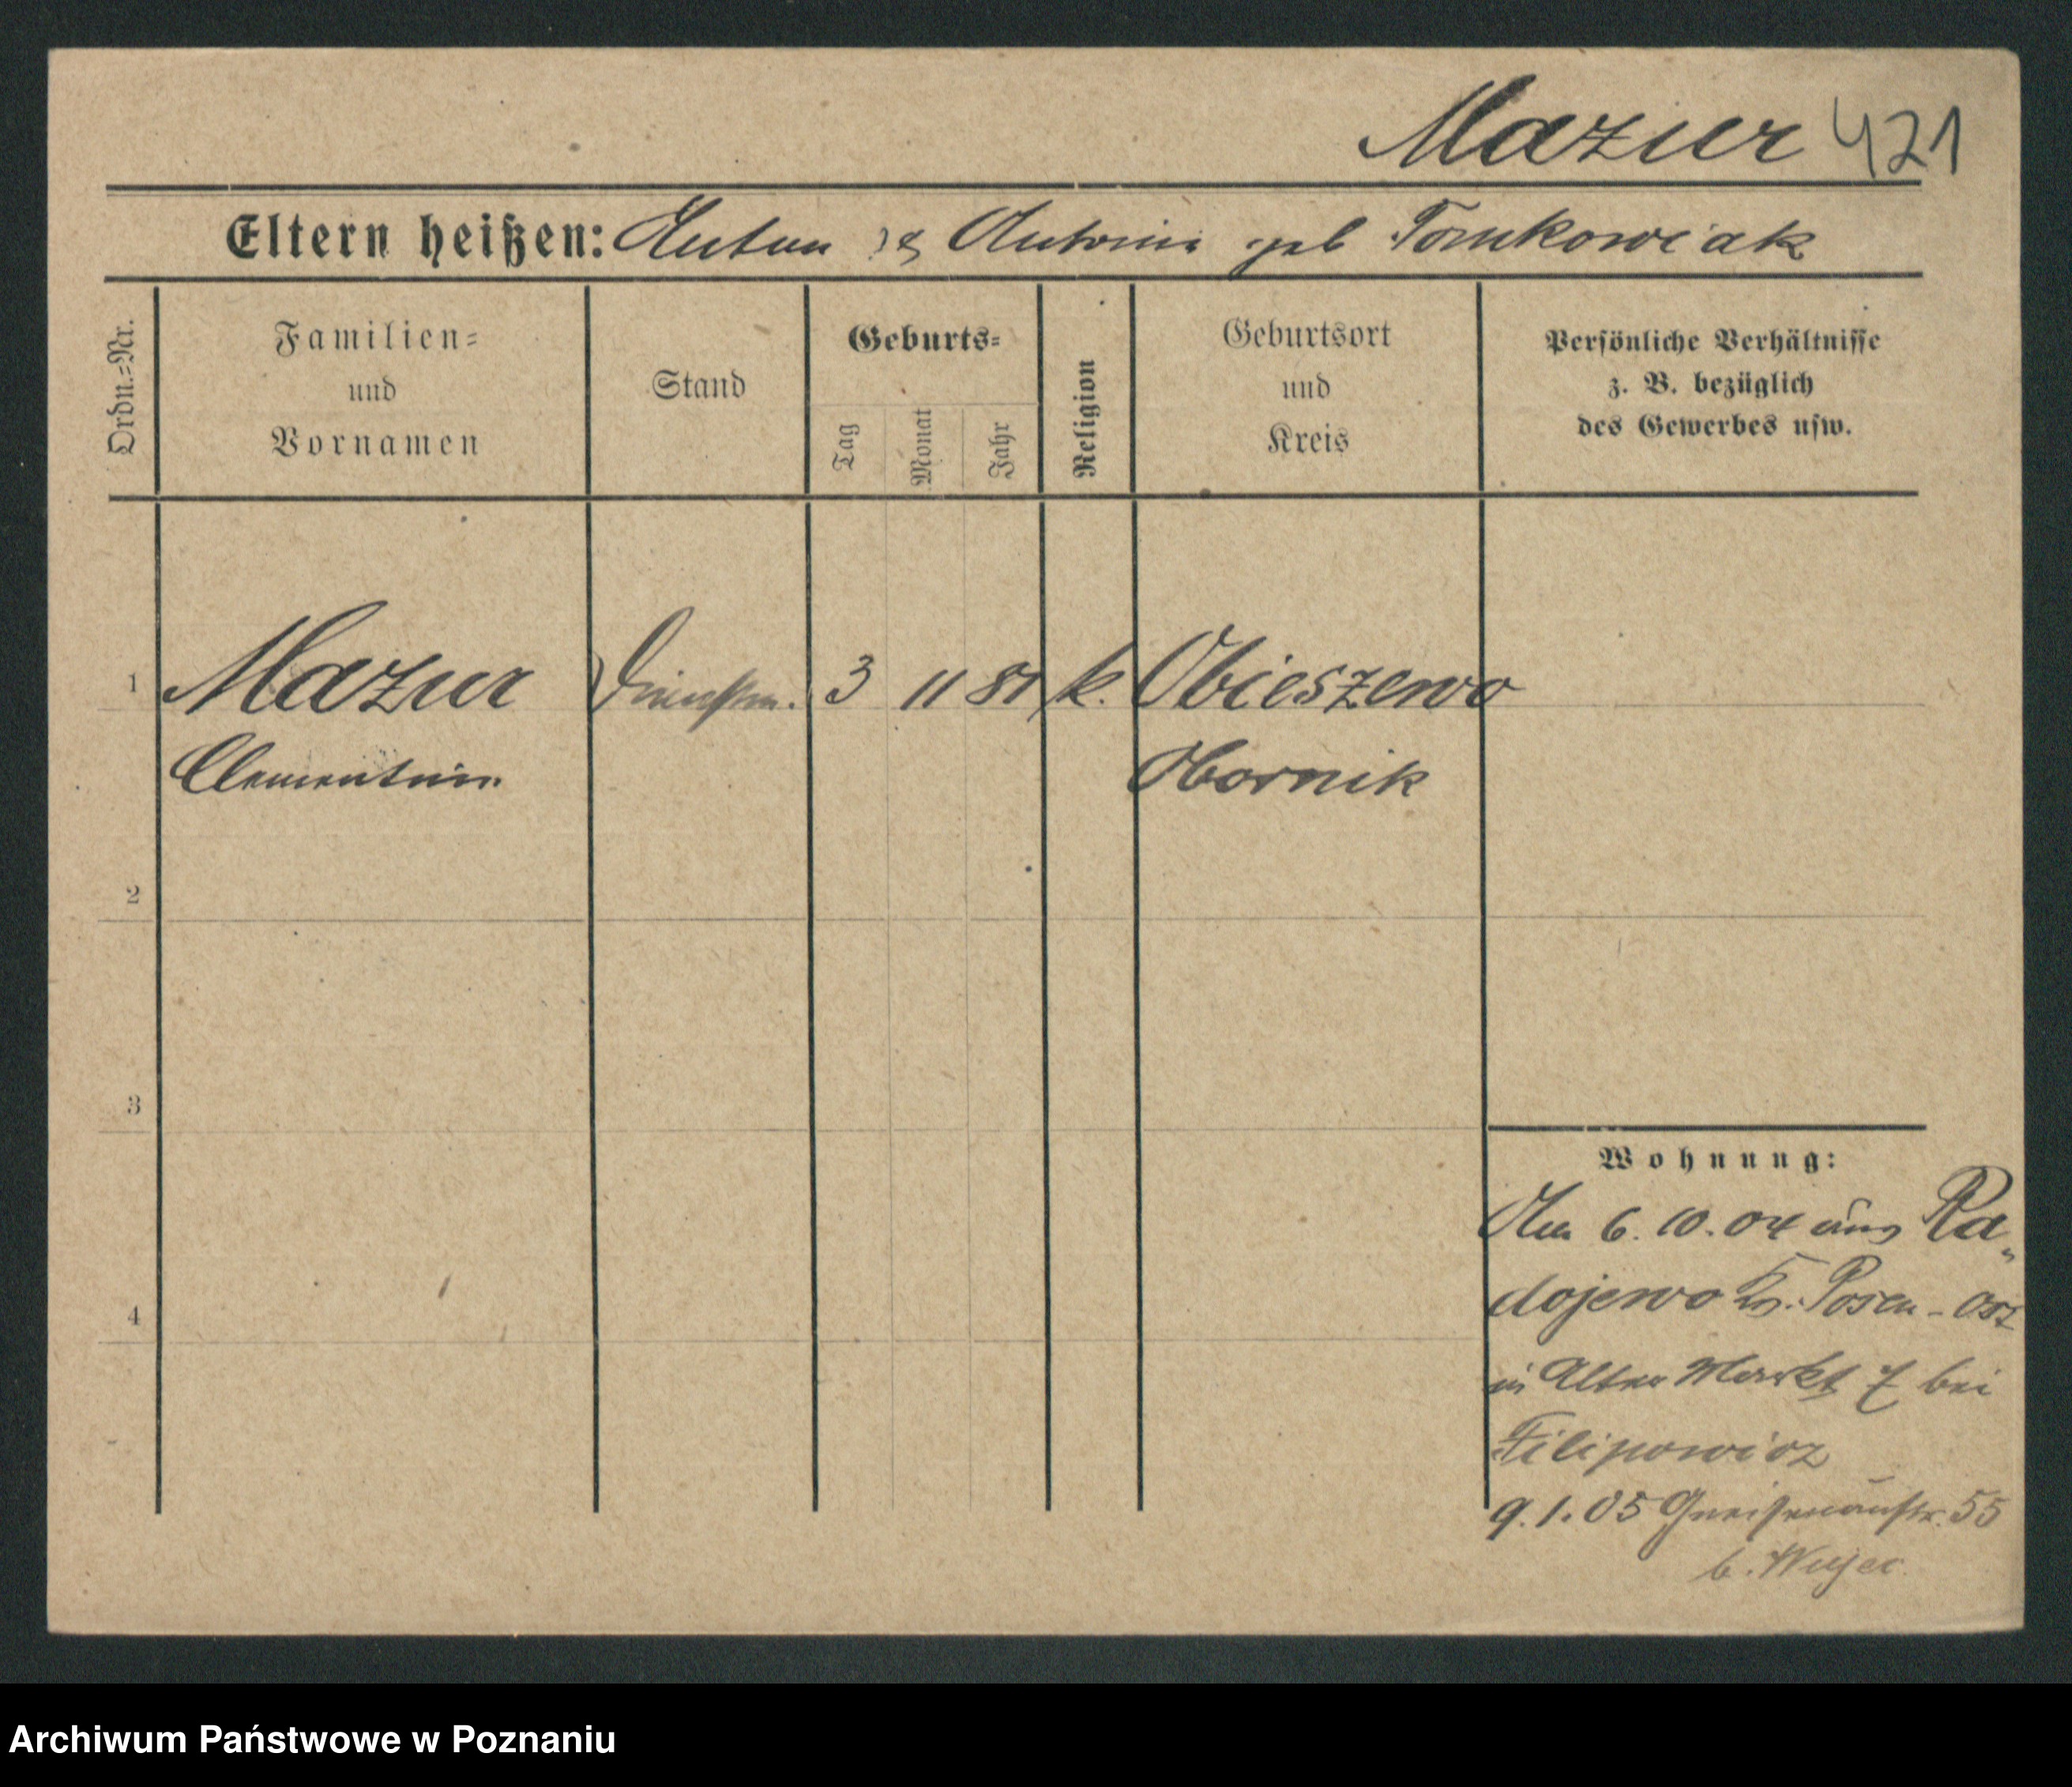 Mazur 421
Eltern heißen: Anton & Antonie geb Tomkowiak
Ordn.=Nr.
Familien=
und
Vornamen
Stand
Geburts=
Tag
Monat
Jahr
Religion
Geburtsort
und
Kreis
Persönliche Verhältnisse
z. B. bezüglich
des Gewerbes usw.
1 Mazur Dienstm. 3 11 81 k. Obieszewo
Clementine Obornik
2
3
4
Wohnung:
Am 6. 10. 04 aus Ra„
dojewo Kr. Posen-Ost
in Alter Markt 7 bei
Filipowicz
9. 1. 05 Gneisenaustr. 55
b. Wujec
Archiwum Państwowe w Poznaniu